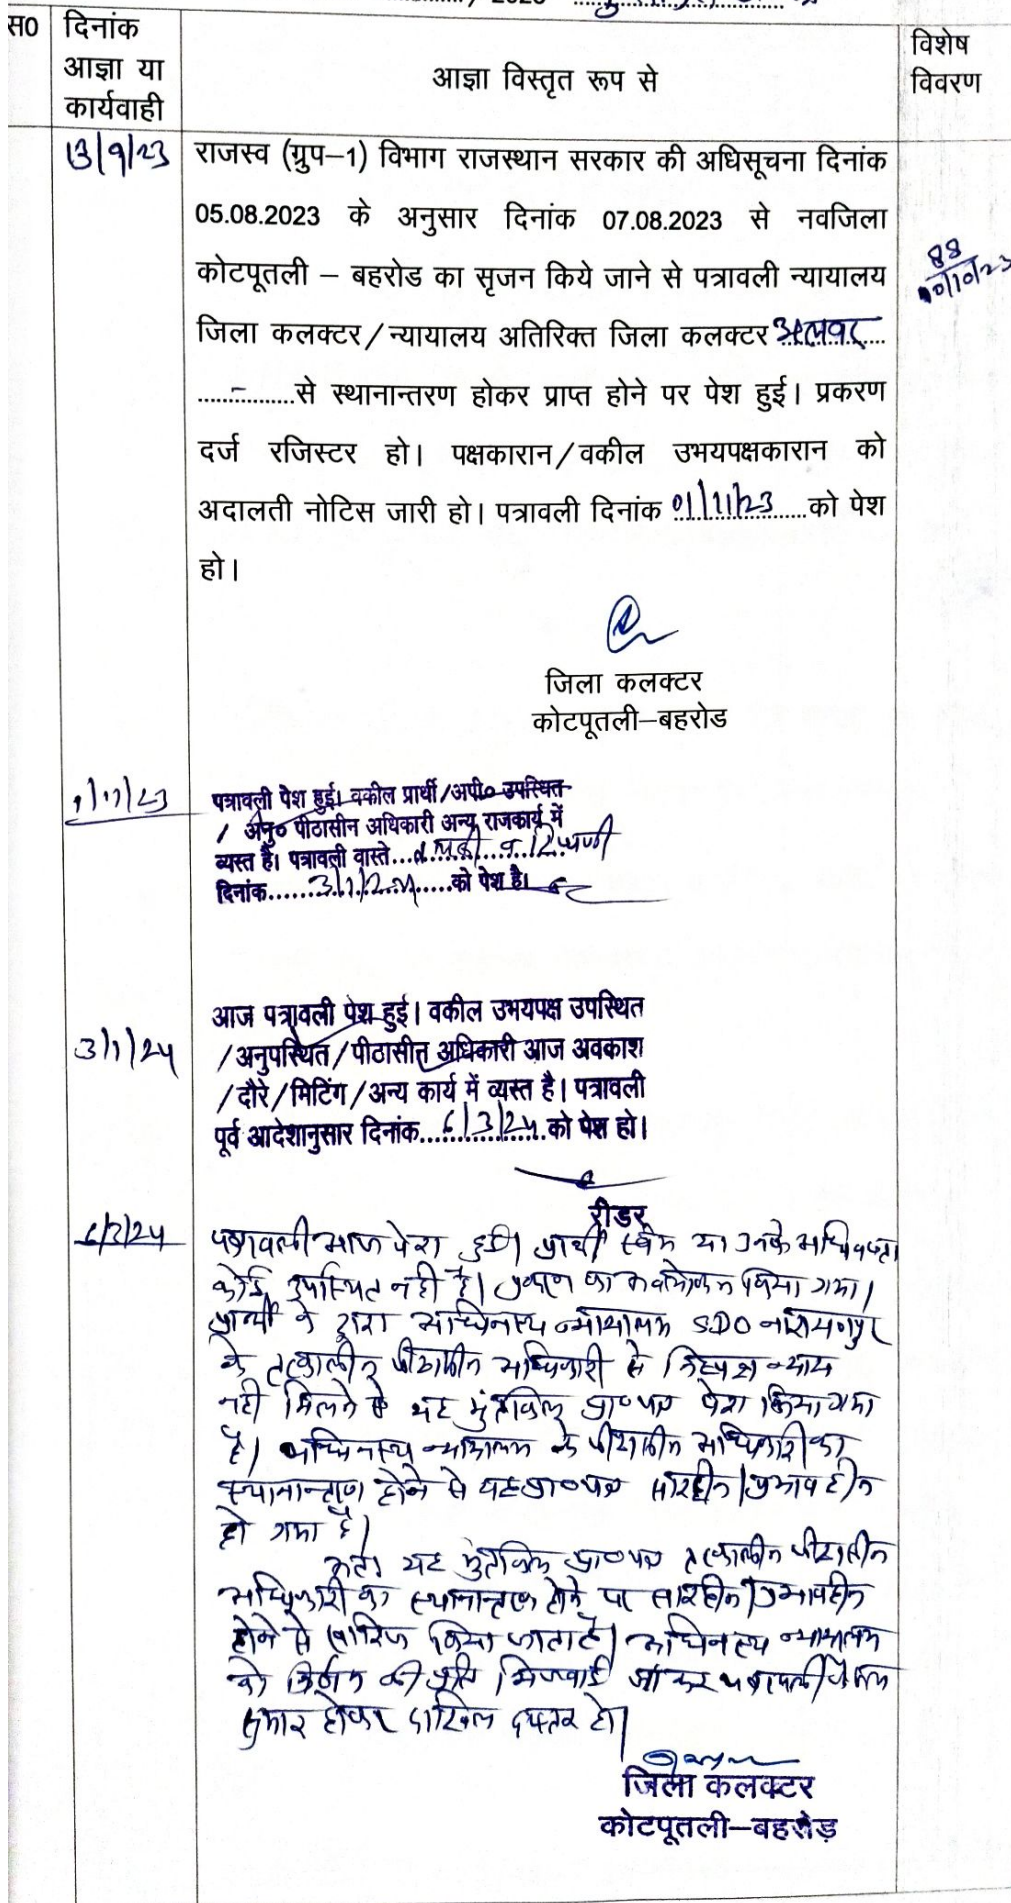 / 2023
स0
दिनांक
आज्ञा या
कार्यवाही
आज्ञा विस्तृत रूप से
विशेष
विवरण
13/9/23
राजस्व (ग्रुप–1) विभाग राजस्थान सरकार की अधिसूचना दिनांक
05.08.2023 के अनुसार दिनांक 07.08.2023 से नवजिला
कोटपूतली – बहरोड का सृजन किये जाने से पत्रावली न्यायालय
जिला कलक्टर/न्यायालय अतिरिक्त जिला कलक्टर अलवर
......–.........से स्थानान्तरण होकर प्राप्त होने पर पेश हुई। प्रकरण
दर्ज रजिस्टर हो। पक्षकारान/वकील उभयपक्षकारान को
अदालती नोटिस जारी हो। पत्रावली दिनांक 01/11/23 को पेश
हो।
88
10/10/23
जिला कलक्टर
कोटपूतली–बहरोड
1/11/23
पत्रावली पेश हुई। वकील प्रार्थी/अपी० उपस्थित
/ अनु० पीठासीन अधिकारी अन्य राजकार्य में
व्यस्त है। पत्रावली वास्ते
दिनांक......3/1/24......को पेश है।
3/1/24
आज पत्रावली पेश हुई। वकील उभयपक्ष उपस्थित
/अनुपस्थित/पीठासीन अधिकारी आज अवकाश
/दौरे/मिटिंग/अन्य कार्य में व्यस्त है। पत्रावली
पूर्व आदेशानुसार दिनांक...6/3/24...को पेश हो।
रीडर
6/3/24
पत्रावली आज पेश हुई। प्रार्थी स्वयं या उनके अधिवक्ता
कोई उपस्थित नही है। प्रकरण का अवलोकन किया गया।
प्रार्थी के द्वारा अधिनस्थ न्यायालय SDO नारायणपुर
के तत्कालीन पीठासीन अधिकारी से निष्पक्ष न्याय
नही मिलने से यह मुंतकिल प्रा०पत्र पेश किया गया
है। अधिनस्थ न्यायालय के पीठासीन अधिकारी का
स्थानान्तरण होने से यह प्रा०पत्र सारहीन/प्रभावहीन
हो गया है।
अतः यह मुंतकिल प्रा०पत्र तत्कालीन पीठासीन
अधिकारी का स्थानान्तरण होने पर सारहीन/प्रभावहीन
होने से खारिज किया जाता है। अधिनस्थ न्यायालय
को निर्णय की प्रति भिजवाई जाकर पत्रावली फैसल
शुमार होकर दाखिल दफ्तर हो।
जिला कलक्टर
कोटपूतली–बहरोड़